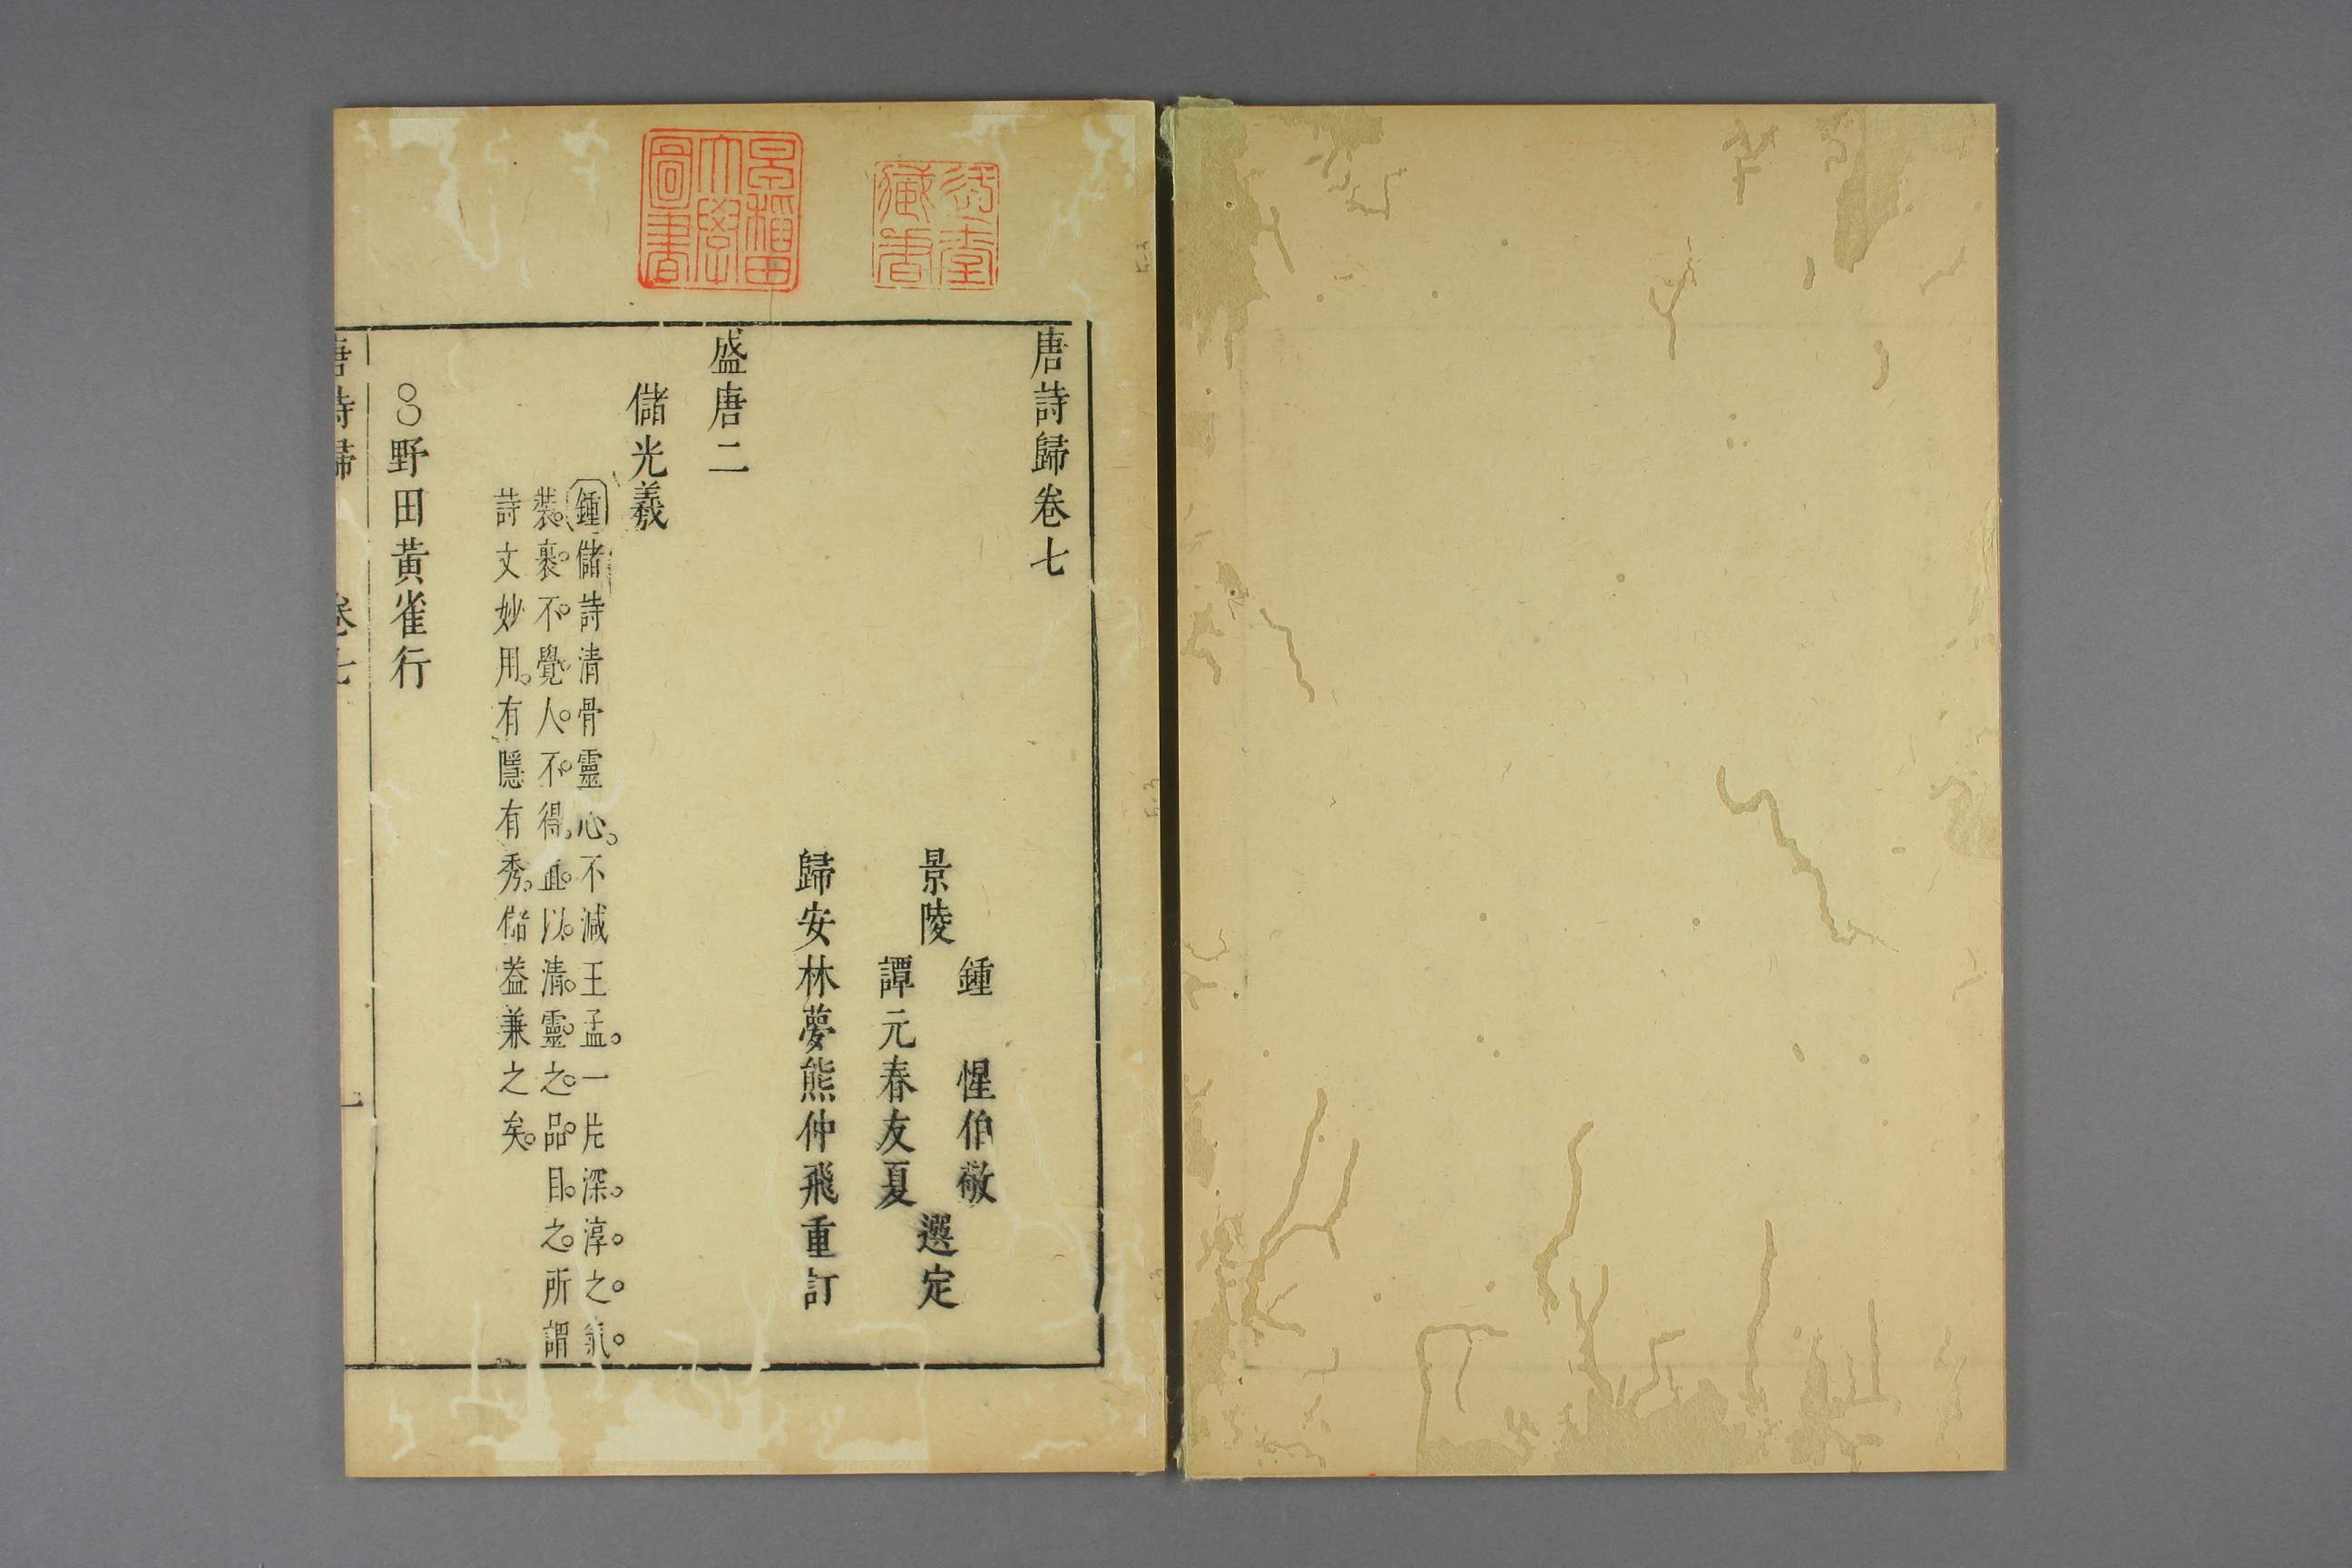 唐詩歸卷七
景陵
鍾惺伯敬
譚元春友夏
選定
歸安林夢熊仲飛重訂
盛唐二
儲光羲
鍾儲詩清骨靈心。不減王孟。一片深。淳。之。氣。
裝。裹。不。覺。人。不。得。直。以。清。靈。之。品。目。之。所謂
詩文妙用。有隱有秀。儲葢兼之矣。
野田黃雀行
唐詩歸 卷七 一
早稻田大學圖書
藏書